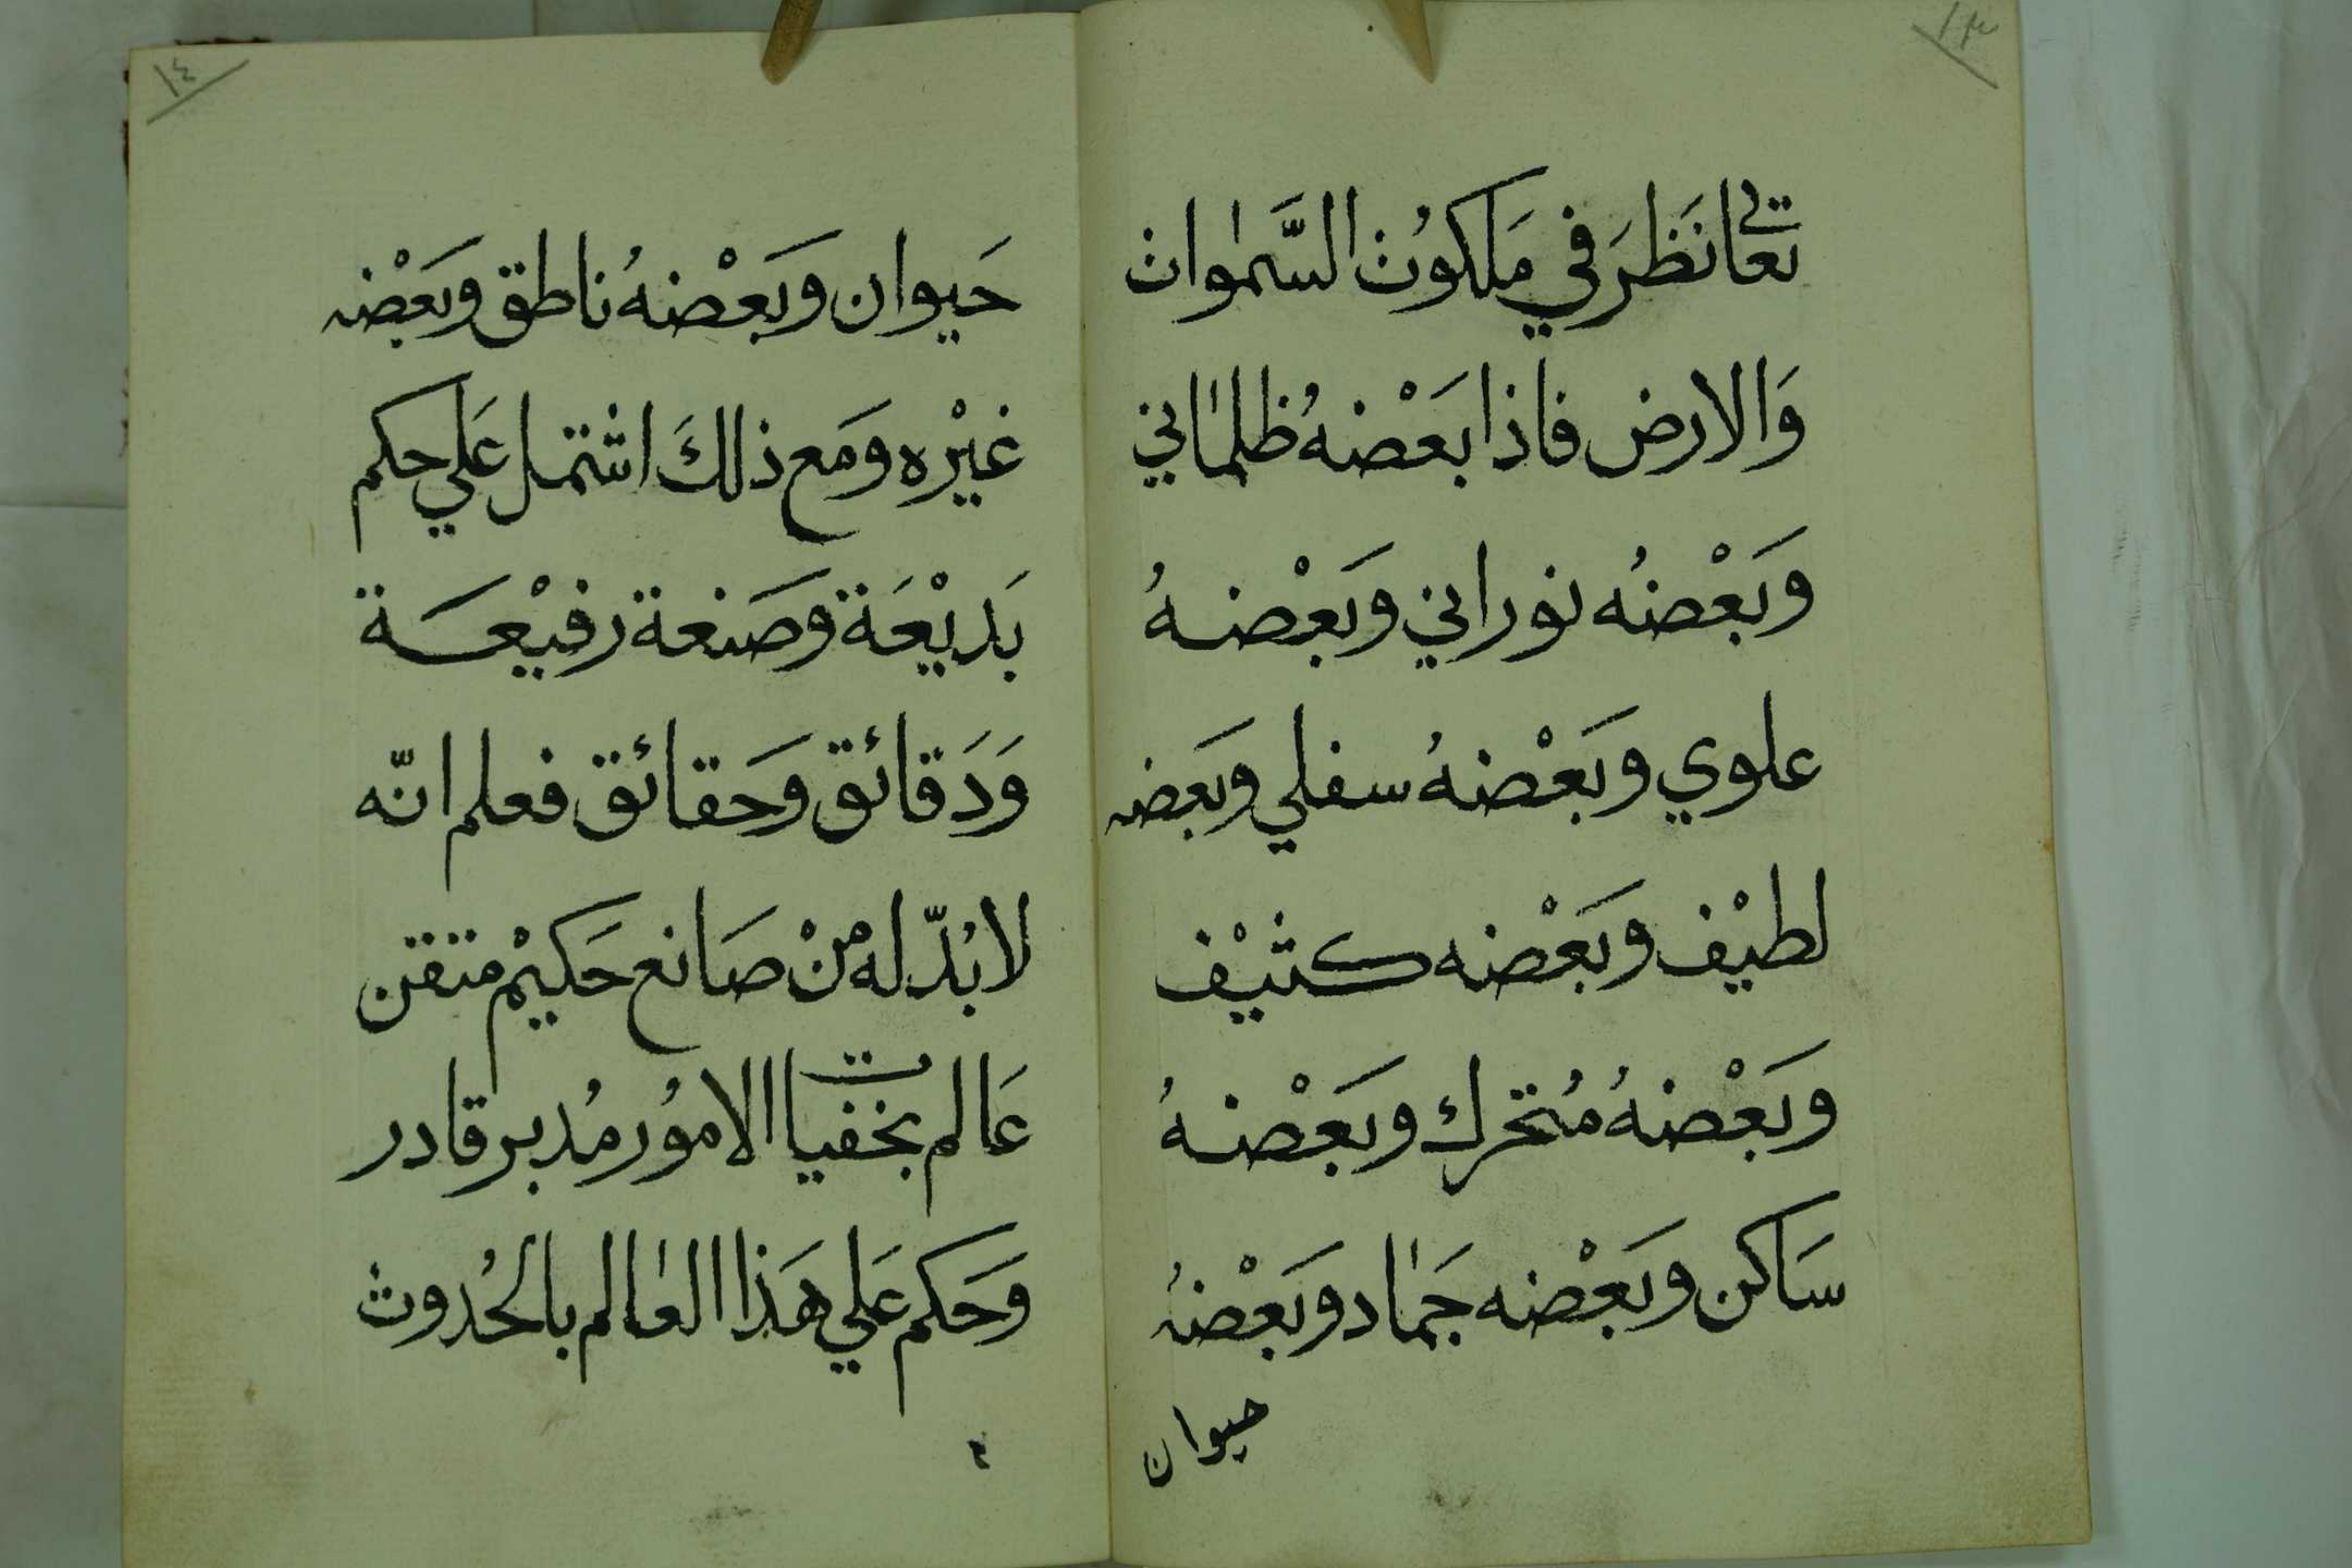 ١٣
تعالى نَظَرَ في مَلكوُت السَّمٰوات
وَالارض فاذا بَعْضهُ ظلمٰاني
وَبَعْضُه نوراني وَبَعْضهُ
علوي وَبَعْضهُ سفلي وَبَعضه
لطيْف وَبَعْضه كثيْف
وَبَعْضهُ مُتحرك وَبَعْضهُ
سَاكن وَبَعْضه جَمٰاد وَبَعْضهُ
حيوان
١٤
حَيوان وَبَعْضهُ ناطق وَبَعْضه
غيْره وَمَع ذلكَ اشتمل عَلي حكم
بَديْعَة وَصَنعة رفيْعَة
وَدَقائق وَحَقائق فعلم انّه
لابُدّ له منْ صَانع حَكيْم متقن
عَالم بخفيات الاموُر مُدبر قادر
وَحَكم عَلي هَذا العٰالم بالحُدوث